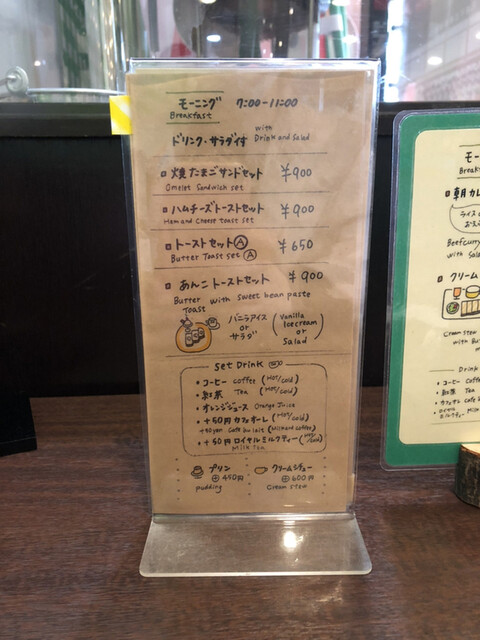 モーニング 7:00-11:00
Breakfast
ドリンク・サラダ付 with Drink and Salad
焼たまごサンドセット ¥900
Omelet Sandwich set
ハムチーズトーストセット ¥900
Ham and Cheese toast set
トーストセットⒶ ¥650
Butter Toast set Ⓐ
あんこトーストセット ¥900
Butter Toast with sweet bean paste
バニラアイス or サラダ
(Vanilla Icecream or Salad)
Set Drink
・コーヒー coffee (Hot/cold)
・紅茶 Tea (Hot/cold)
・オレンジジュース Orange Juice
・+50円 カフェオーレ (Hot/cold)
+50yen Cafe au lait
・+50円 ロイヤルミルクティー
Milk Tea
プリン
⊕450円
pudding
クリームシチュー
⊕600円
Cream stew
モー
Break
朝カレ
Beefcurry
with Sala
クリーム
Cream stew
with Bu
Drink
・コーヒー Co
・紅茶 Tea
・カフェオレ Cafe
・ロイヤル
ミルクティー